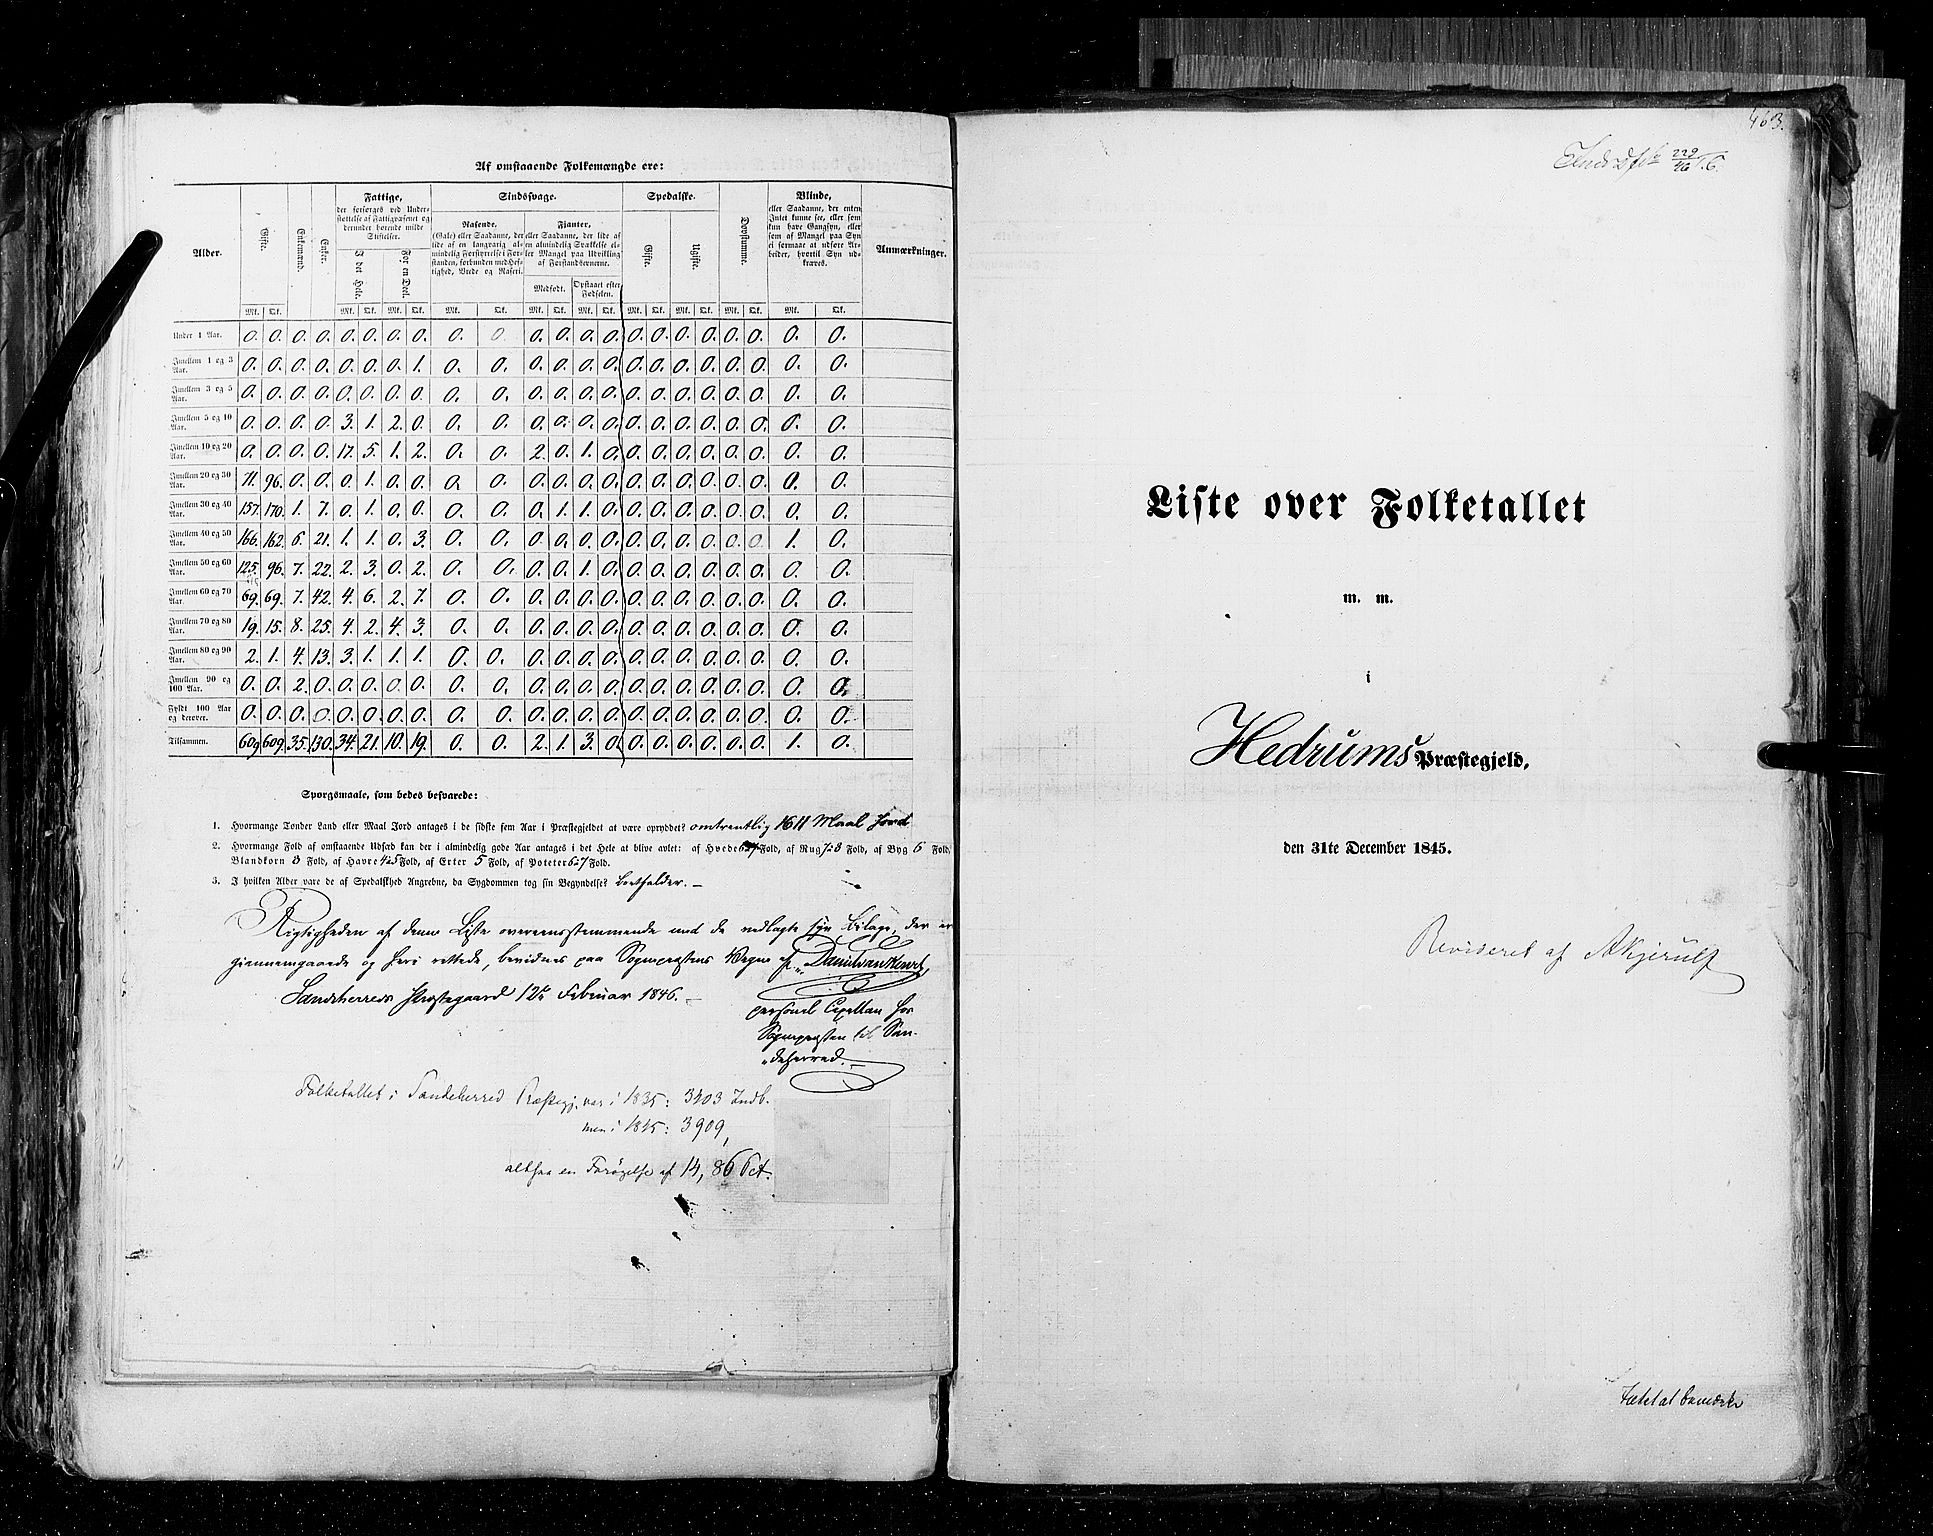 Af omstaaende Folkemængde ere:
Alder.
Gifte.
Enkemænd.
Enker.
Fattige,
der forsørges ved Under-
støttelse af Fattigvæsenet og
derunder hørende milde
Stiftelser.
I det Hele.
For en Deel.
Sindssvage.
Rasende.
(Gale) eller Saadanne, der
lide af en langvarig al-
mindelig Forstyrrelse i For-
standen, forbunden med Hef-
tighed, Vrede og Raseri.
Fjanter,
eller Saadanne, der lide af
en almindelig Svækkelse el-
ler Mangel paa Udvikling
af Forstandsevnerne.
Medfødt.
Opstaaet efter
Fødselen.
Spedalske.
Gifte.
Ugifte.
Døvstumme.
Blinde,
eller Saadanne, der enten
Intet kunne see, eller som
kun have Gangsyn, eller
som af Mangel paa Syn
ei formaae at udføre Ar-
beider, hvortil Syn ud-
kræves.
Anmærkninger.
Mk. Qk. Mk. Qk. Mk. Qk. Mk. Qk. Mk. Qk. Mk. Qk. Mk. Qk. Mk. Qk. Mk. Qk. Mk. Qk.
Under 1 Aar. 0. 0. 0. 0. 0. 0. 0. 0. 0. 0. 0. 0. 0. 0. 0. 0. 0. 0. 0. 0. 0. 0.
Imellem 1 og 3 Aar. 0. 0. 0. 0. 0. 0. 0. 1. 0. 0. 0. 0. 0. 0. 0. 0. 0. 0. 0. 0. 0. 0.
Imellem 3 og 5 Aar. 0. 0. 0. 0. 0. 0. 0. 0. 0. 0. 0. 0. 0. 0. 0. 0. 0. 0. 0. 0. 0. 0.
Imellem 5 og 10 Aar. 0. 0. 0. 0. 3. 1. 2. 0. 0. 0. 0. 0. 0. 0. 0. 0. 0. 0. 0. 0. 0. 0.
Imellem 10 og 20 Aar. 0. 0. 0. 0. 17. 5. 1. 2. 0. 0. 2. 0. 1. 0. 0. 0. 0. 0. 0. 0. 0. 0.
Imellem 20 og 30 Aar. 71. 96. 0. 0. 0. 1. 0. 0. 0. 0. 0. 0. 0. 0. 0. 0. 0. 0. 0. 0. 0. 0.
Imellem 30 og 40 Aar. 157. 170. 1. 7. 0. 1. 0. 0. 0. 0. 0. 1. 1. 0. 0. 0. 0. 0. 0. 0. 0. 0.
Imellem 40 og 50 Aar. 166. 162. 6. 21. 1. 1. 0. 3. 0. 0. 0. 0. 0. 0. 0. 0. 0. 0. 0. 0. 1. 0.
Imellem 50 og 60 Aar. 125. 96. 7. 22. 2. 3. 0. 2. 0. 0. 0. 0. 1. 0. 0. 0. 0. 0. 0. 0. 0. 0.
Imellem 60 og 70 Aar. 69. 69. 7. 42. 4. 6. 2. 7. 0. 0. 0. 0. 0. 0. 0. 0. 0. 0. 0. 0. 0. 0.
Imellem 70 og 80 Aar. 19. 15. 8. 25. 4. 2. 4. 3. 0. 0. 0. 0. 0. 0. 0. 0. 0. 0. 0. 0. 0. 0.
Imellem 80 og 90 Aar. 2. 1. 4. 13. 3. 1. 1. 1. 0. 0. 0. 0. 0. 0. 0. 0. 0. 0. 0. 0. 0. 0.
Imellem 90 og 100 Aar. 0. 0. 2. 0. 0. 0. 0. 0. 0. 0. 0. 0. 0. 0. 0. 0. 0. 0. 0. 0. 0. 0.
Fyldt 100 Aar og derover. 0. 0. 0. 0. 0. 0. 0. 0. 0. 0. 0. 0. 0. 0. 0. 0. 0. 0. 0. 0. 0. 0.
Tilsammen. 609 609. 35. 130. 34. 21. 10. 19. 0. 0. 2. 1. 3. 0. 0. 0. 0. 0. 0. 0. 1. 0.
Spørgsmaale, som bedes besvarede:
1. Hvormange Tønder Land eller Maal Jord antages i de sidste fem Aar i Præstegjeldet at være opryddet? omtrentlig 1611 Maal Jord
2. Hvormange Fold af omstaaende Udsæd kan der i almindelig gode Aar antages i det Hele at blive avlet: af Hvede 6 a 7 Fold, af Rug 7 a 8 Fold, af Byg 6 Fold,
Blandkorn 8 Fold, af Havre 4 a 5 Fold, af Erter 5 Fold, af Poteter 6 a 7 Fold.
3. I hvilken Alder vare de af Spedalskhed Angrebne, da Sygdommen tog sin Begyndelse? bortfalder. –
Rigtigheden af denne Liste overeensstemmende med de vedlagte syv Bilage, der er
giennemgaaede og heri rettede, bevidnes paa Sognepræstens Vegne af
Sandeherreds Præstegaard 12te Februar 1846. –
personel Capellan hos
Sognepræsten til San-
deherred. –
Folketallet i Sandeherred Præstegj. var i 1835: 3403 Indb.
men i 1845: 3909,
altsaa en Forøgelse af 14,86 Pct.
463.
229
46
Liste over Folketallet
m. m.
i
Hedrums Præstegjeld,
den 31te December 1845.
Revideret af AKjerulf